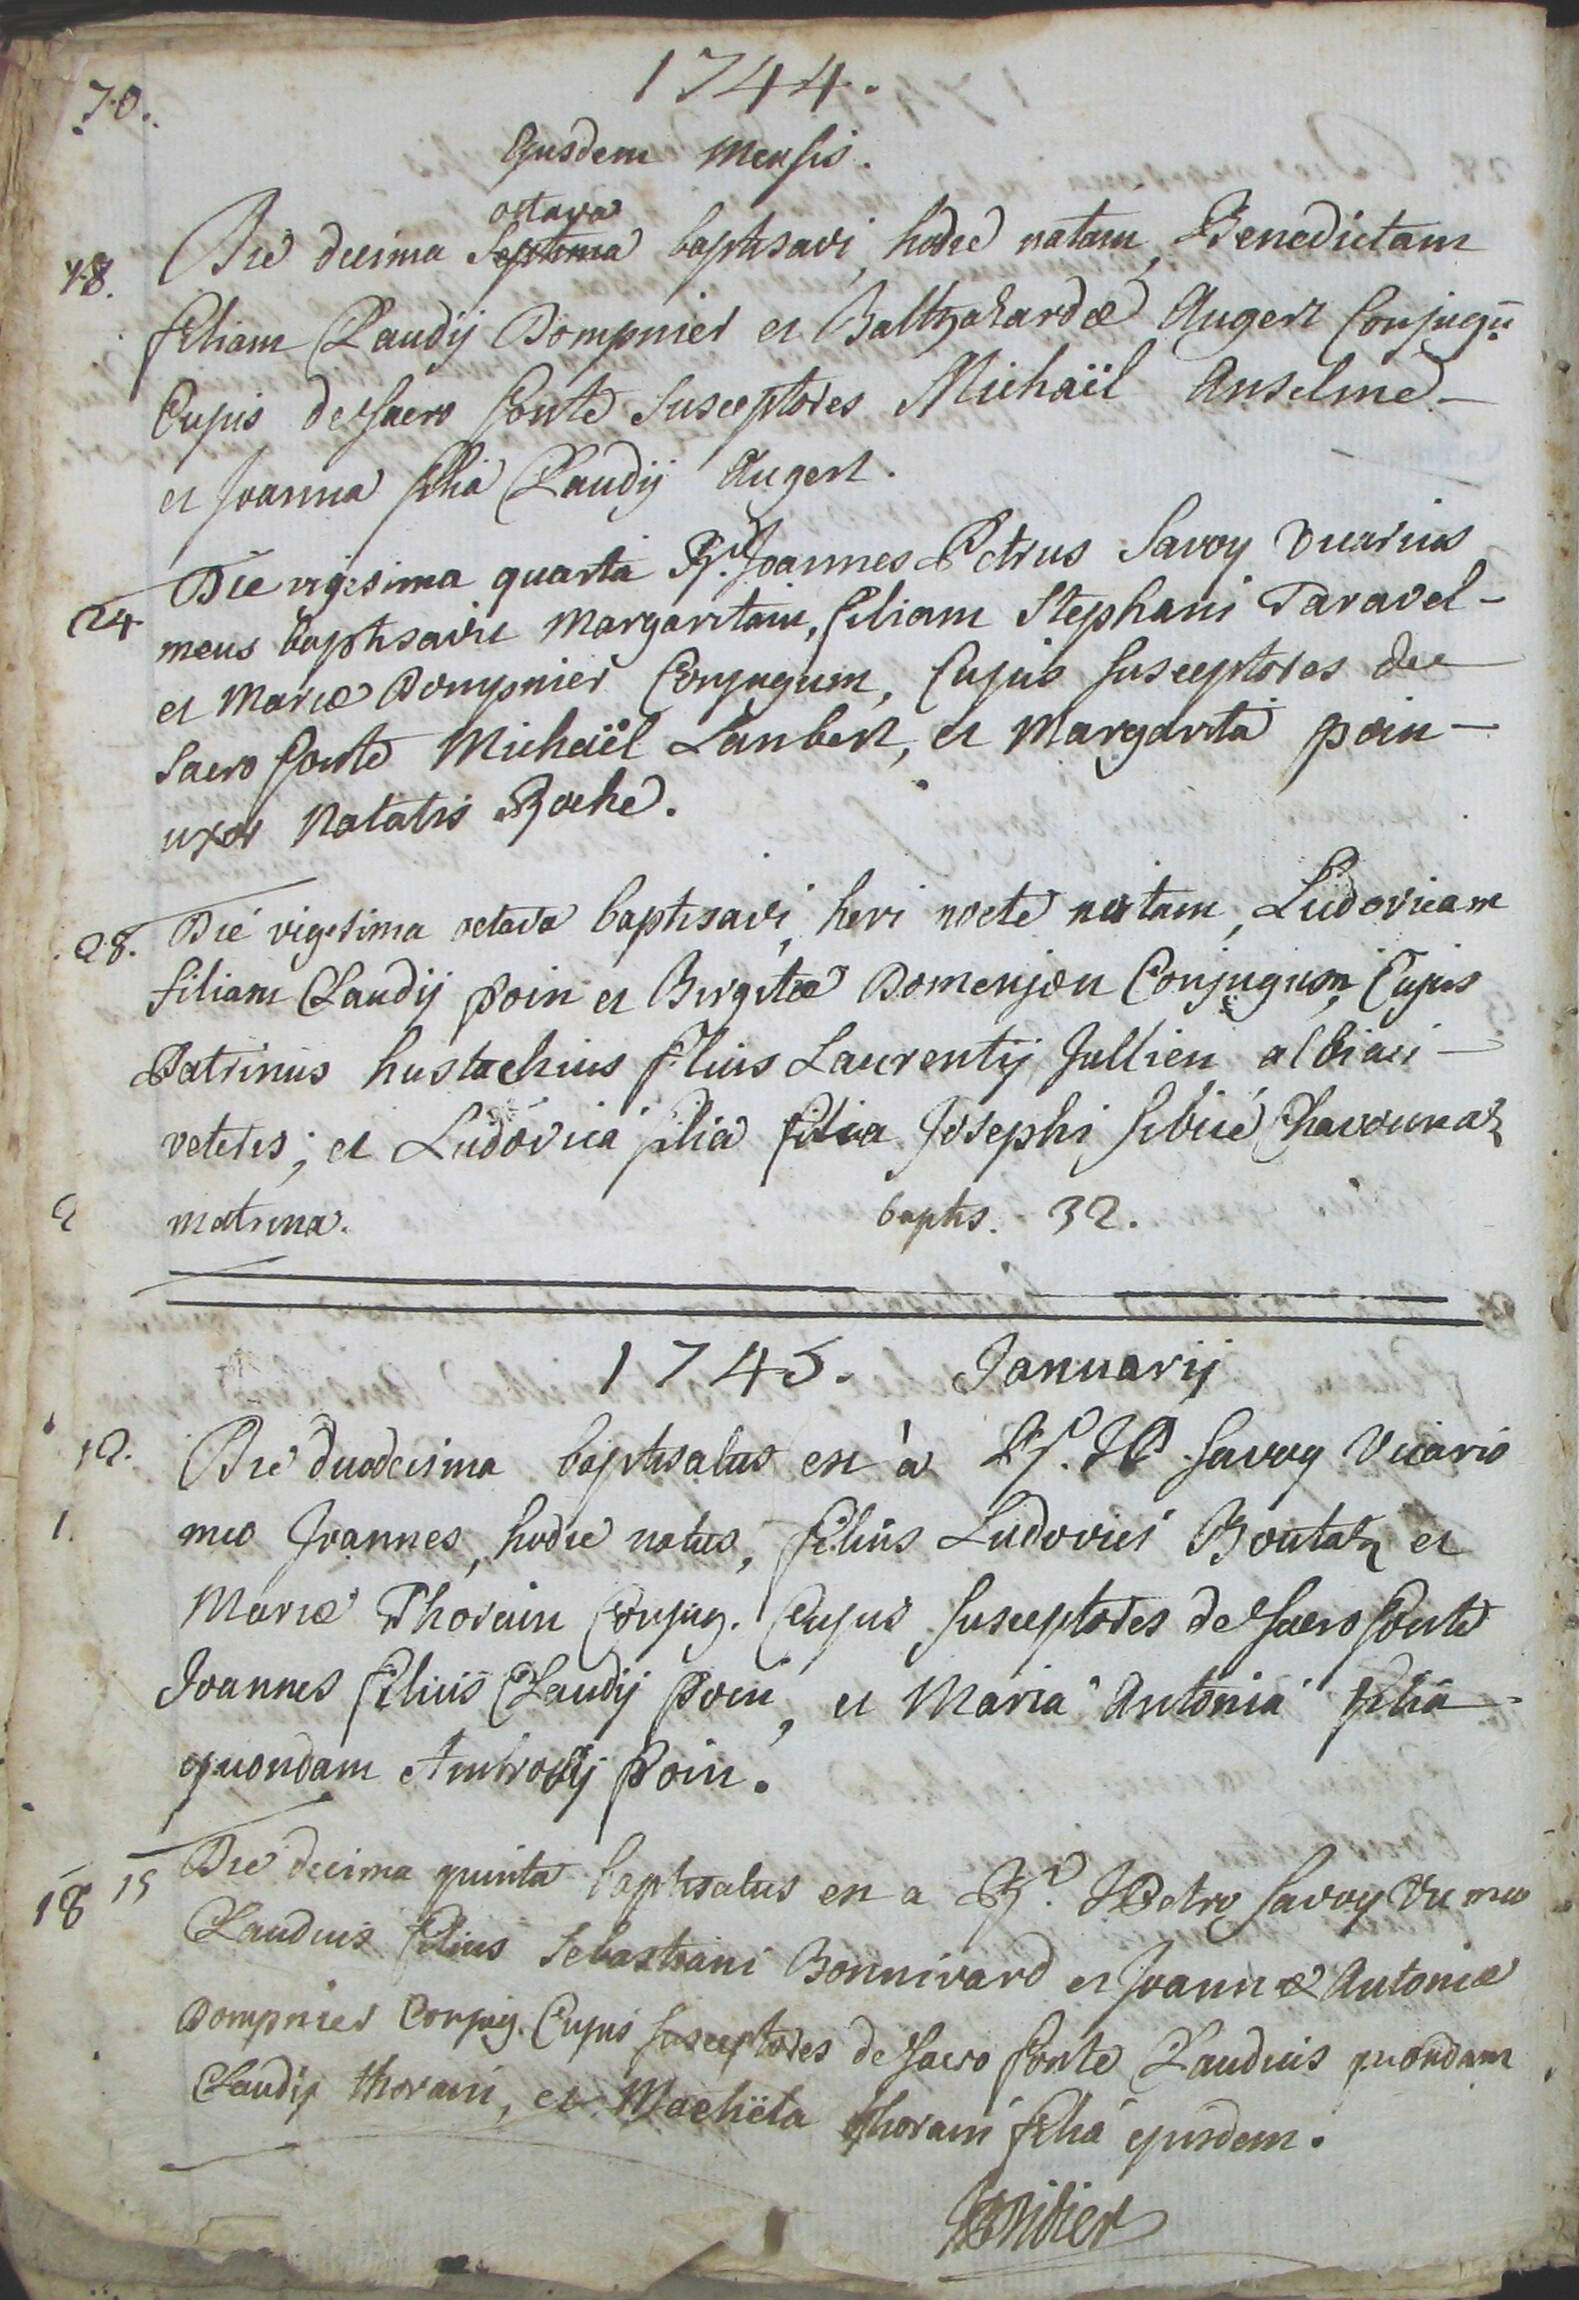 70.
1744.
Ejusdem Mensis.
octava
18. Die decima septima baptisavi, hodie natam, Benedictam
filiam Claudij Dompnier et Balthazardæ Augert Conjugũ
Cujus de sacro fonte susceptores Michaël Anselme
et Joanna filia Claudij Augert.
24 Die vigesima quarta Rd. Joannes Petrus Savoy Vicarius
meus baptisavit Margaritam, filiam Stephani Taravel
et Mariæ Dompnier Conjugum, Cujus susceptores de
sacro fonte Michaël Lambert, et Margarita poin
uxor Natalis Roche.
28. Die vigesima octava baptisavi, heri nocte natam, Ludovicam
filiam Claudij poin et Birgitæ Domenjon Conjugum, Cujus
Patrinus hustachius filius Laurentij Jullien albiaci
veteris; et Ludovica filia filia Josephi sibué Chavounaz
2 matrina. baptis. 32.
1745. Januarij
12. Die duodecima baptisatus est à Rd. JP. Savoy Vicario
1. meo Joannes, hodie natus, filius Ludovici Boutaz et
Mariæ Thorain Conjug. Cujus susceptores de sacro fonte
Joannes filius Claudij poin, et Maria Antonia filia
quondam Ambrosij poin.
18 15 Die decima quinta baptisatus est a Rd. JPetro Savoy Vic meo
Claudius filius Sebastiani Bonnivard et Joannæ Antoniæ
Dompnier Conjug. Cujus susceptores de sacro fonte Claudius quondam
Claudij thorain, et Machëta thorain filia ejusdem.